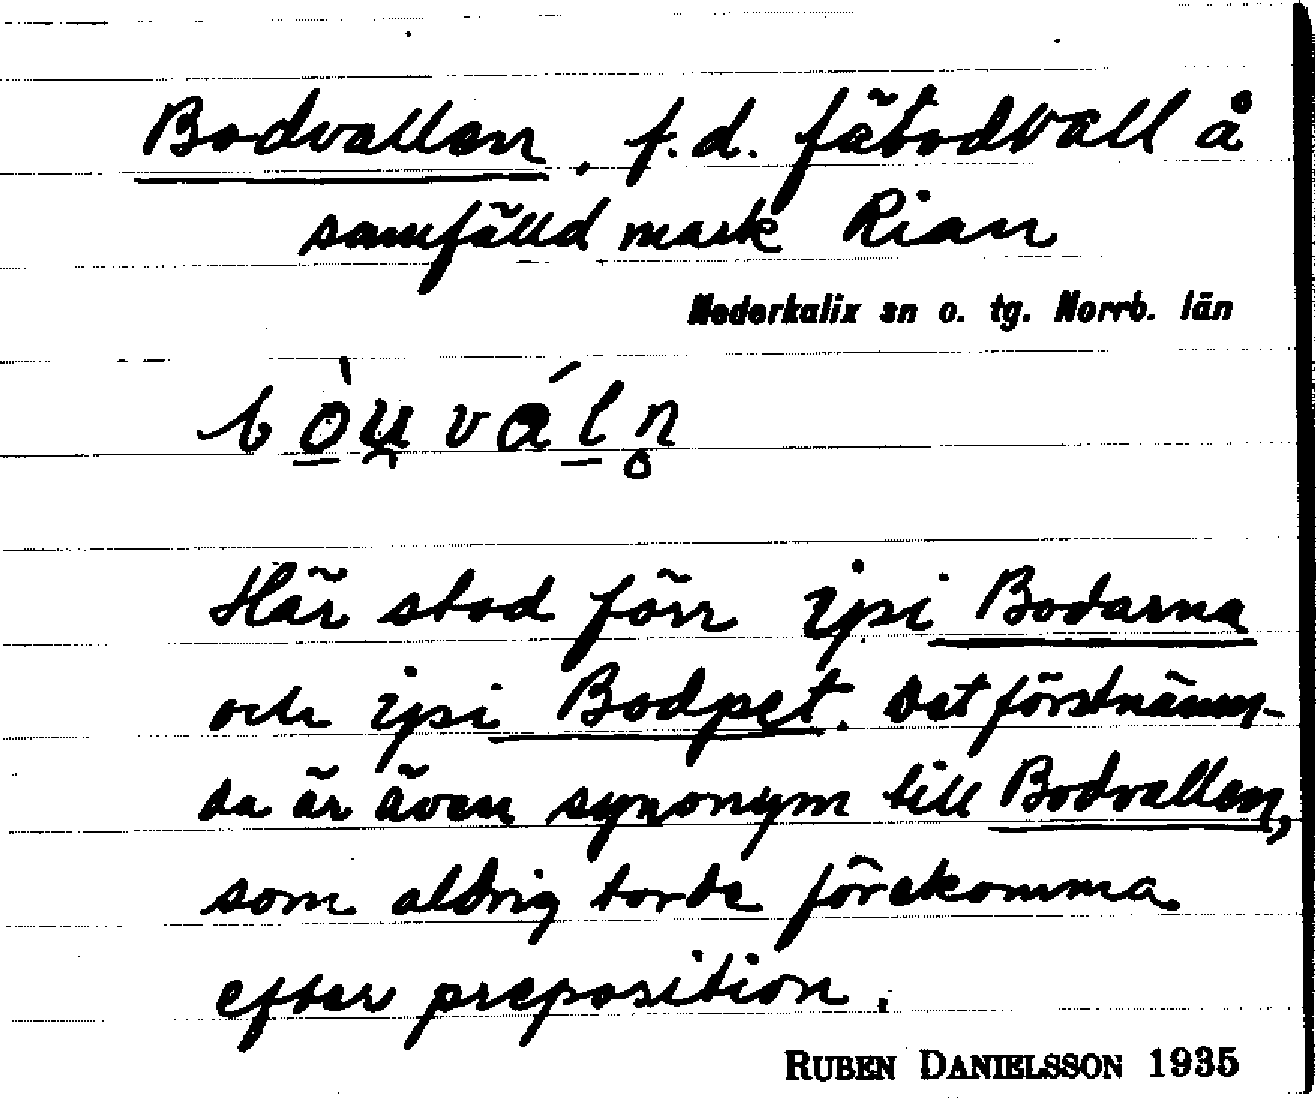 Bodvallen, f.d. fäbodvall å
samfälld mark Rian
Nederkalix sn o. tg. Norrb. län
bòu̯váln̥
Här stod förr ipsi Bodarna
och ipsi Bodpet. Det förstnämn-
da är även synonym till Bodvallen,
som aldrig torde förekomma
efter preposition.
RUBEN DANIELSSON 1935